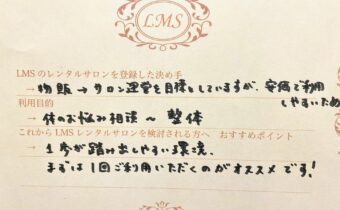 LMS
LMSのレンタルサロンを登録した決め手
→ 物販 → サロン運営を目標としていますが、安価で利用
しやすいため
利用目的
→ 体のお悩み相談 〜 整体
これからLMSレンタルサロンを検討される方へ おすすめポイント
→ 1歩が踏み出しやすい環境、
まずは1回ご利用いただくのがオススメです!